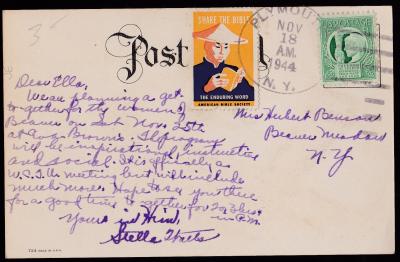 Post Card
SHARE THE BIBLE
THE ENDURING WORD
AMERICAN BIBLE SOCIETY
PLYMOUTH
NOV
18
A.M.
1944
N.Y.
Dear Ella,
We are planning a get-
together for the women of
Beaver Nov 25th
at Browns.
will be inspirational, instructive
and social. It is officially a
W.C.T.U. meeting but will include
much more. Hope to see you there
for a good time together for
in P.M.
Yours in Him,
Stella
Mrs Hubert Benson
Beaver Meadow
N.Y